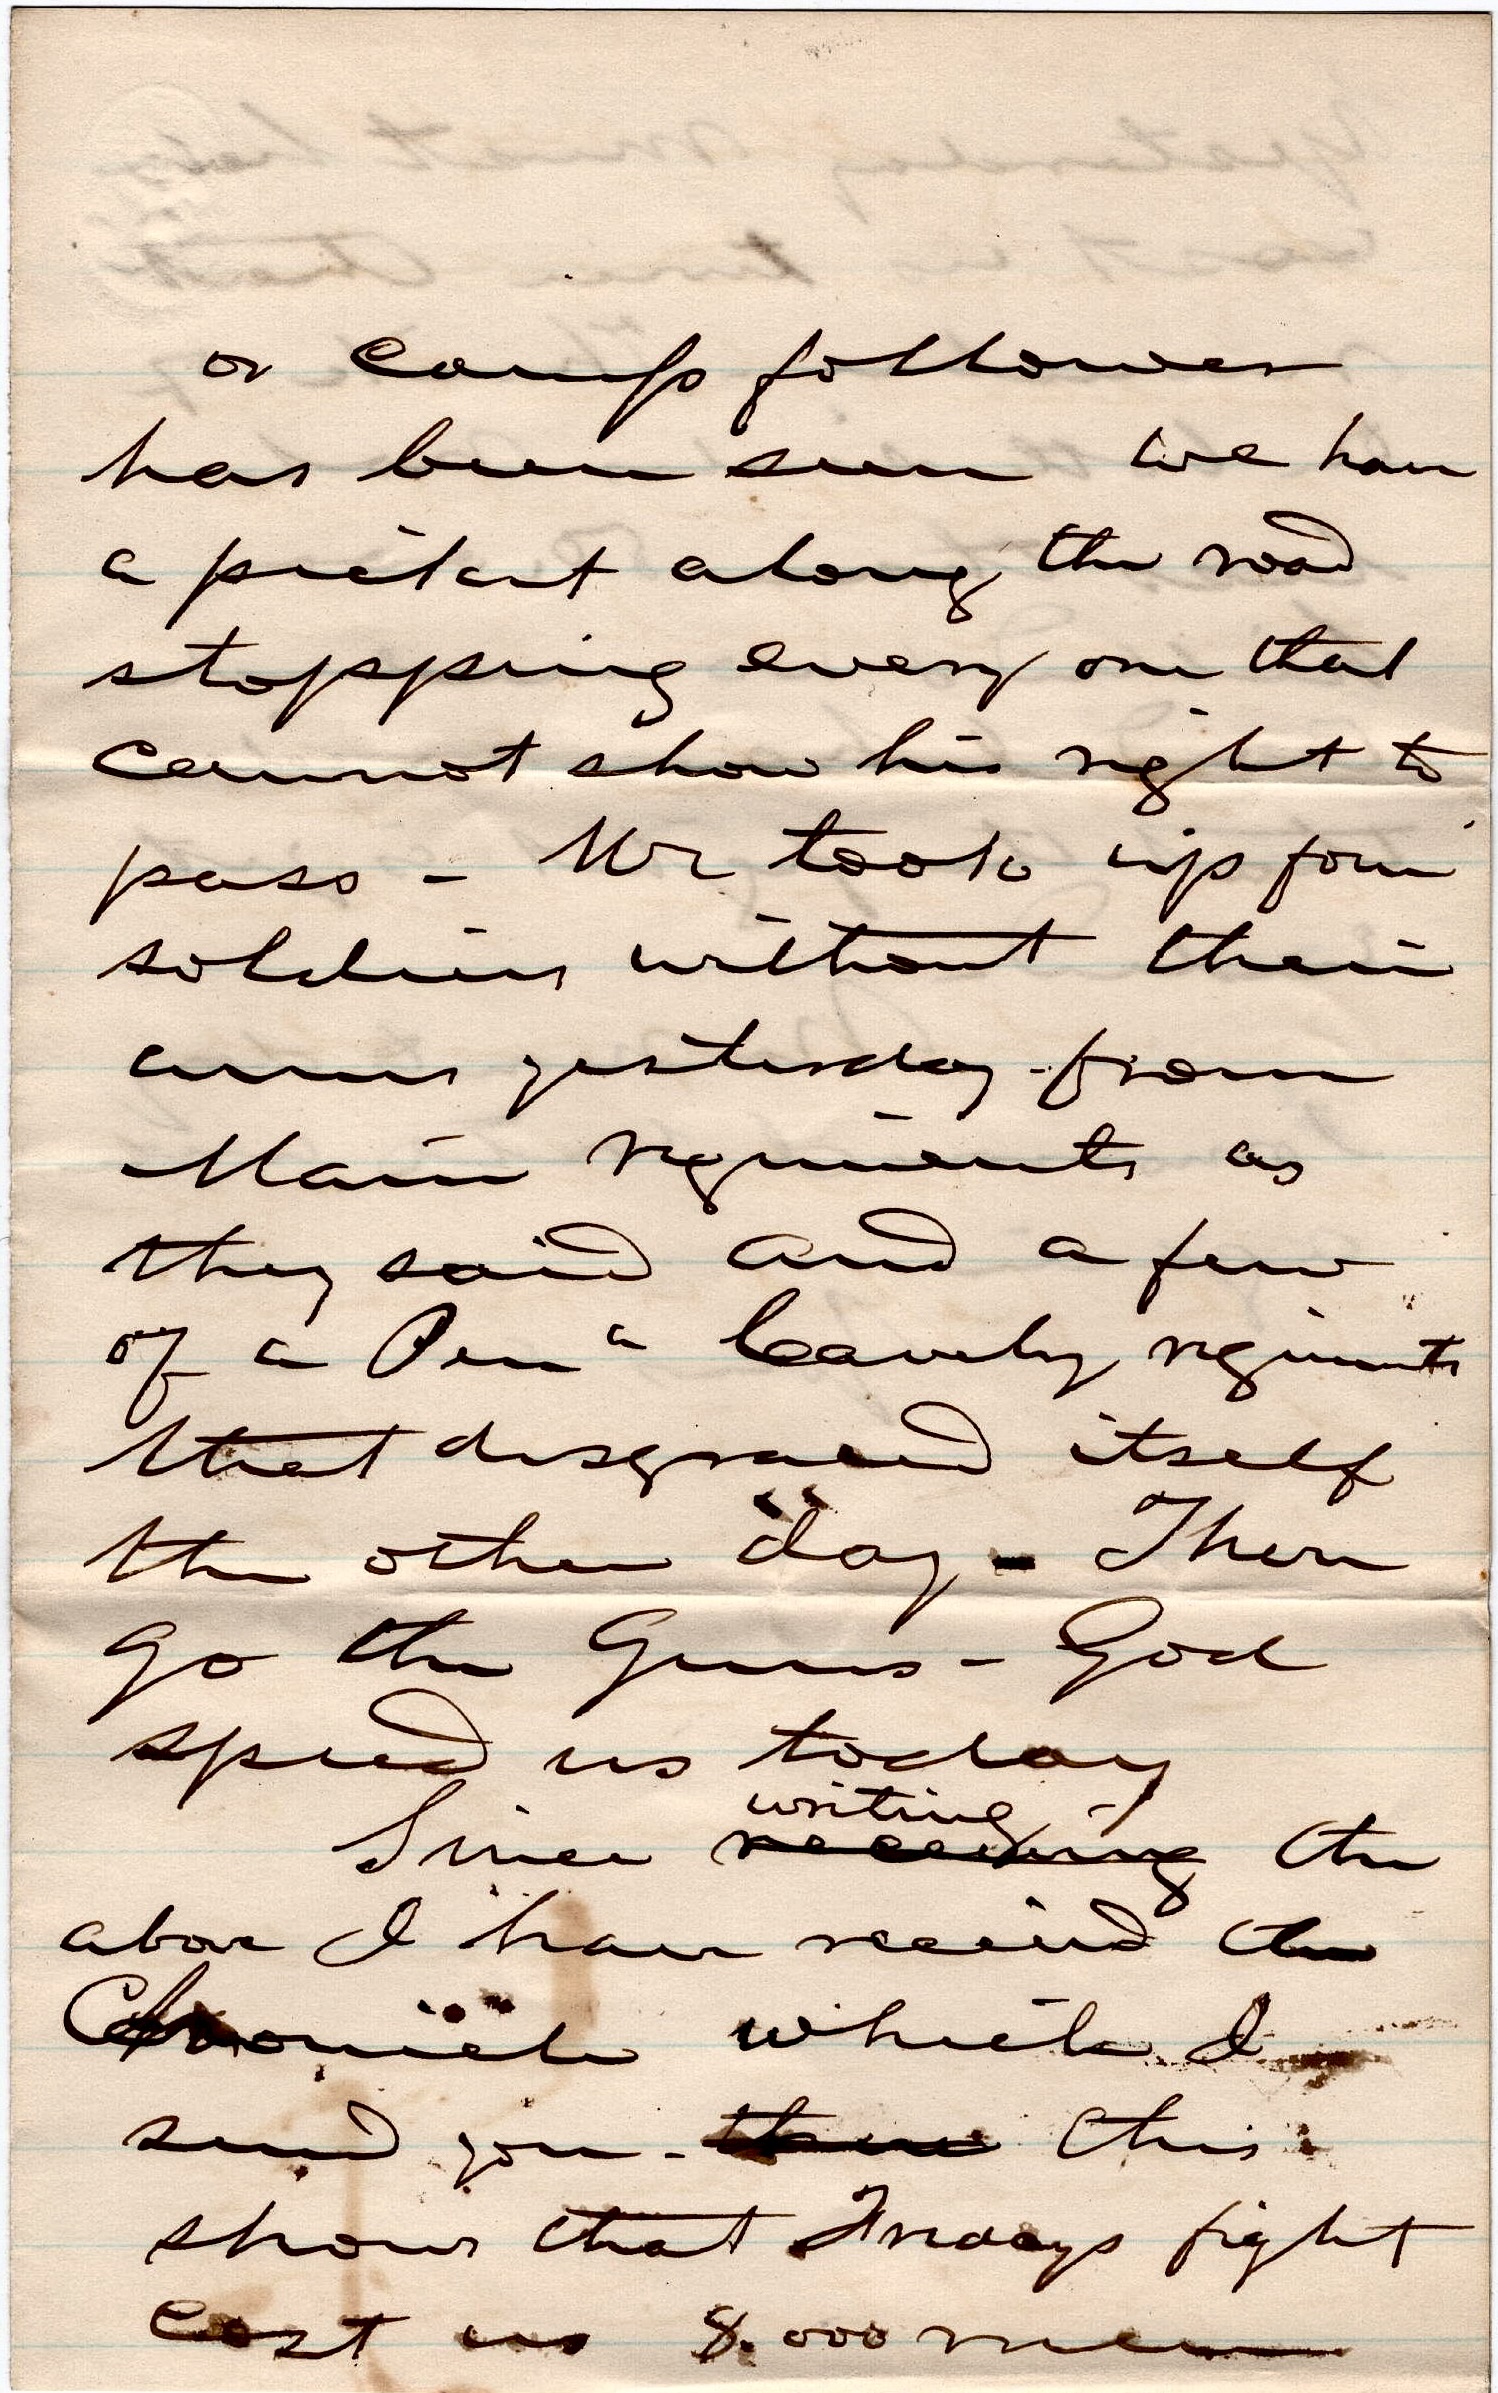 or camp follower
has been seen we have
a picket along the road
stopping every one that
cannot show his right to
pass - We took up four
soldiers without their
arms yesterday - from
Maine regiments as
they said and a few
of a Penn a Cavalry regiments
that disgraced itself
the other day - There
go the Guns - God
speed us today
writing
Since receiving the
above I have received the
Chronicle which I
send you - this
shows that Fridays fight
cost us 8.000 men